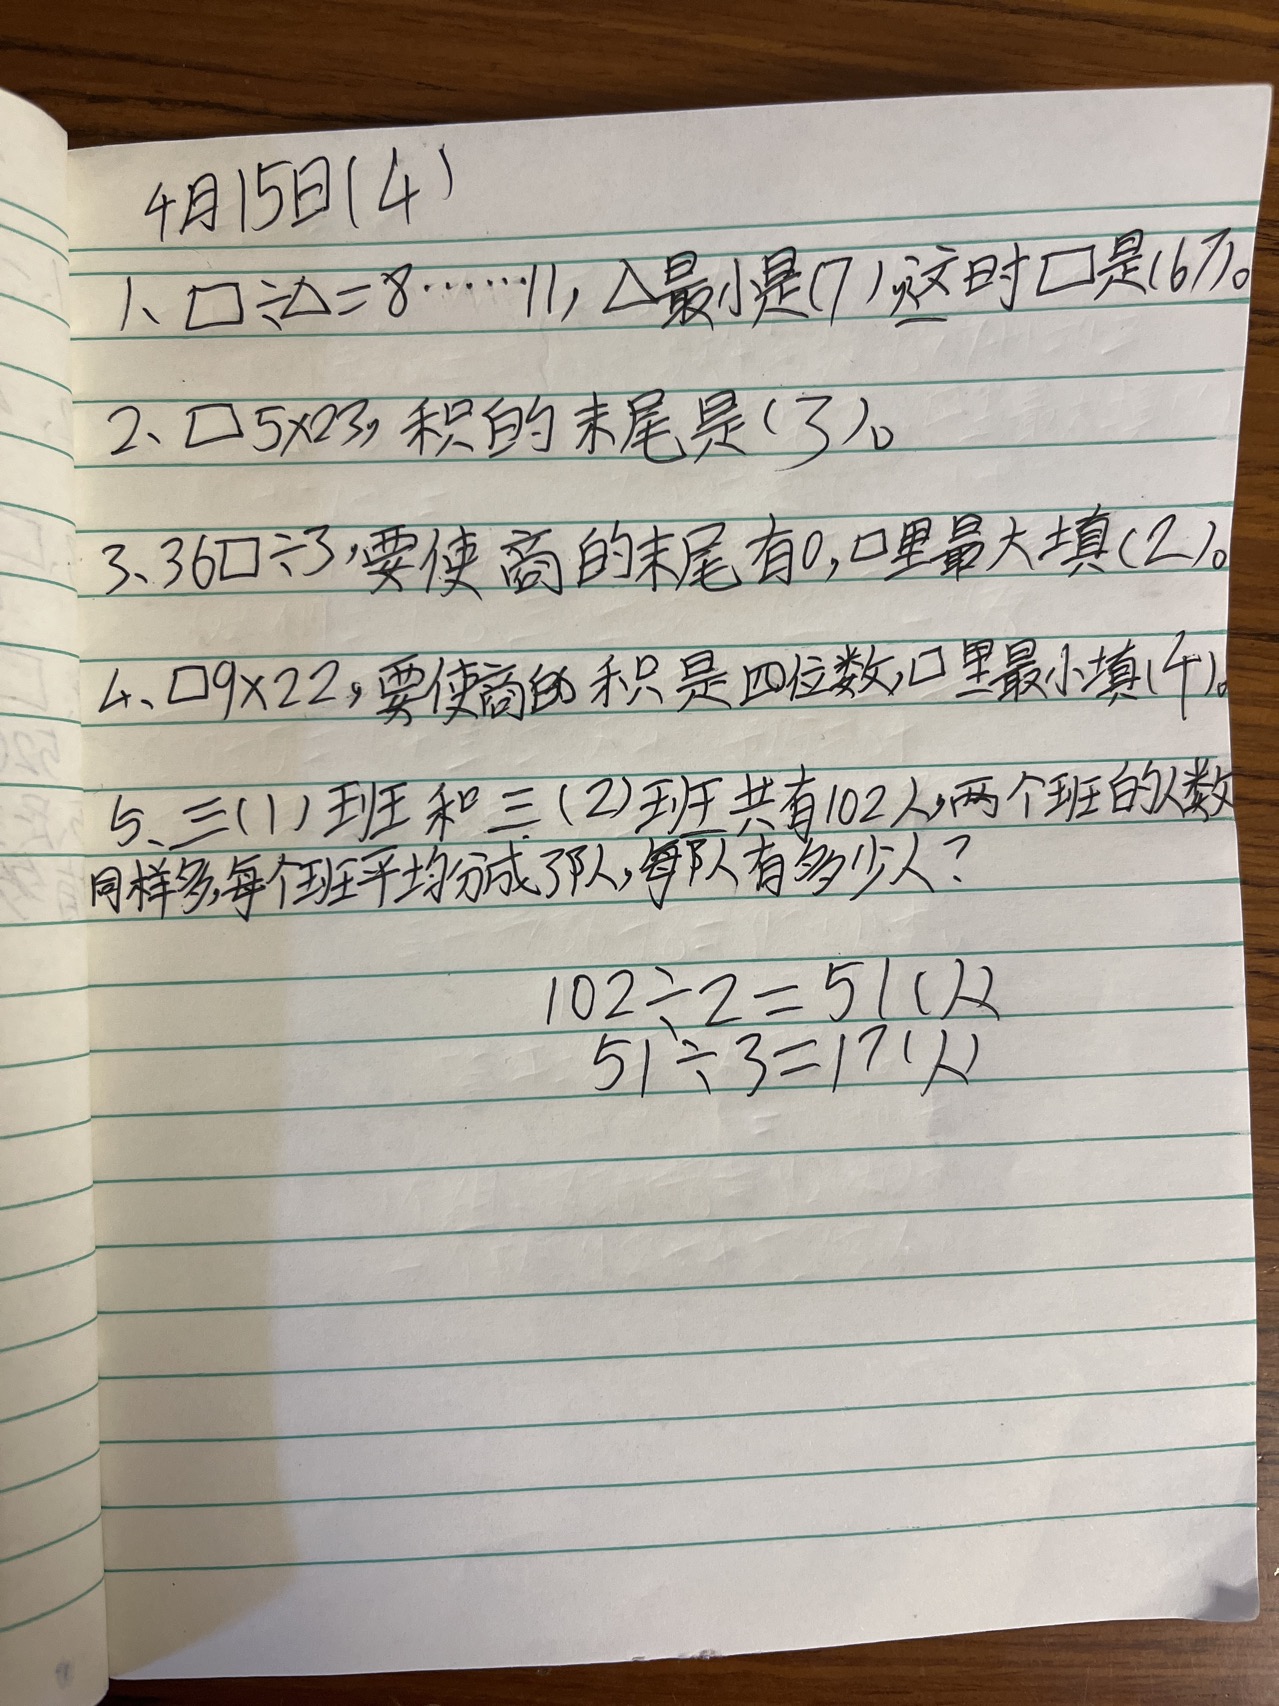 4月15日(4)
1、□÷△=8……11,△最小是(7),这时□是(67)。
2、□5×23,积的末尾是(3)。
3、36□÷3,要使商的末尾有0,□里最大填(2)。
4、□9×22,要使商的积是四位数,□里最小填(4)。
5、三(1)班和三(2)班共有102人,两个班的人数
同样多,每个班平均分成3队,每队有多少人?
102÷2=51(人)
51÷3=17(人)